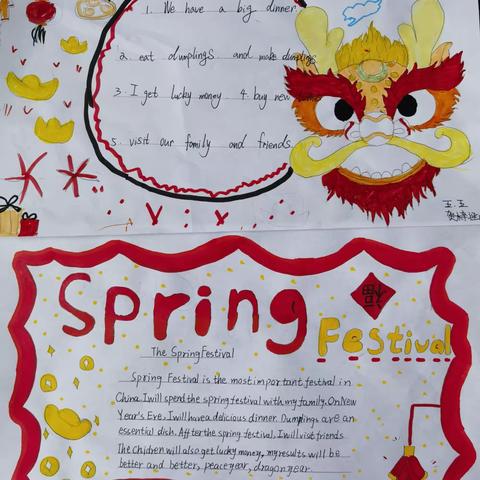 1. We have a big dinner.
2. eat dumplings and make dumplings
3. I get lucky money 4. buy new
5. visit our family and friends.
五.五
Spring
福
Festival
The Spring Festival
Spring Festival is the most important festival in
China. I will spend the spring festival with my family. On New
Year's Eve. I will have a delicious dinner. Dumplings are an
essential dish. After the spring festival, I will visit friends.
The children will also get lucky money, my results will be
better and better, peace year, dragon year.